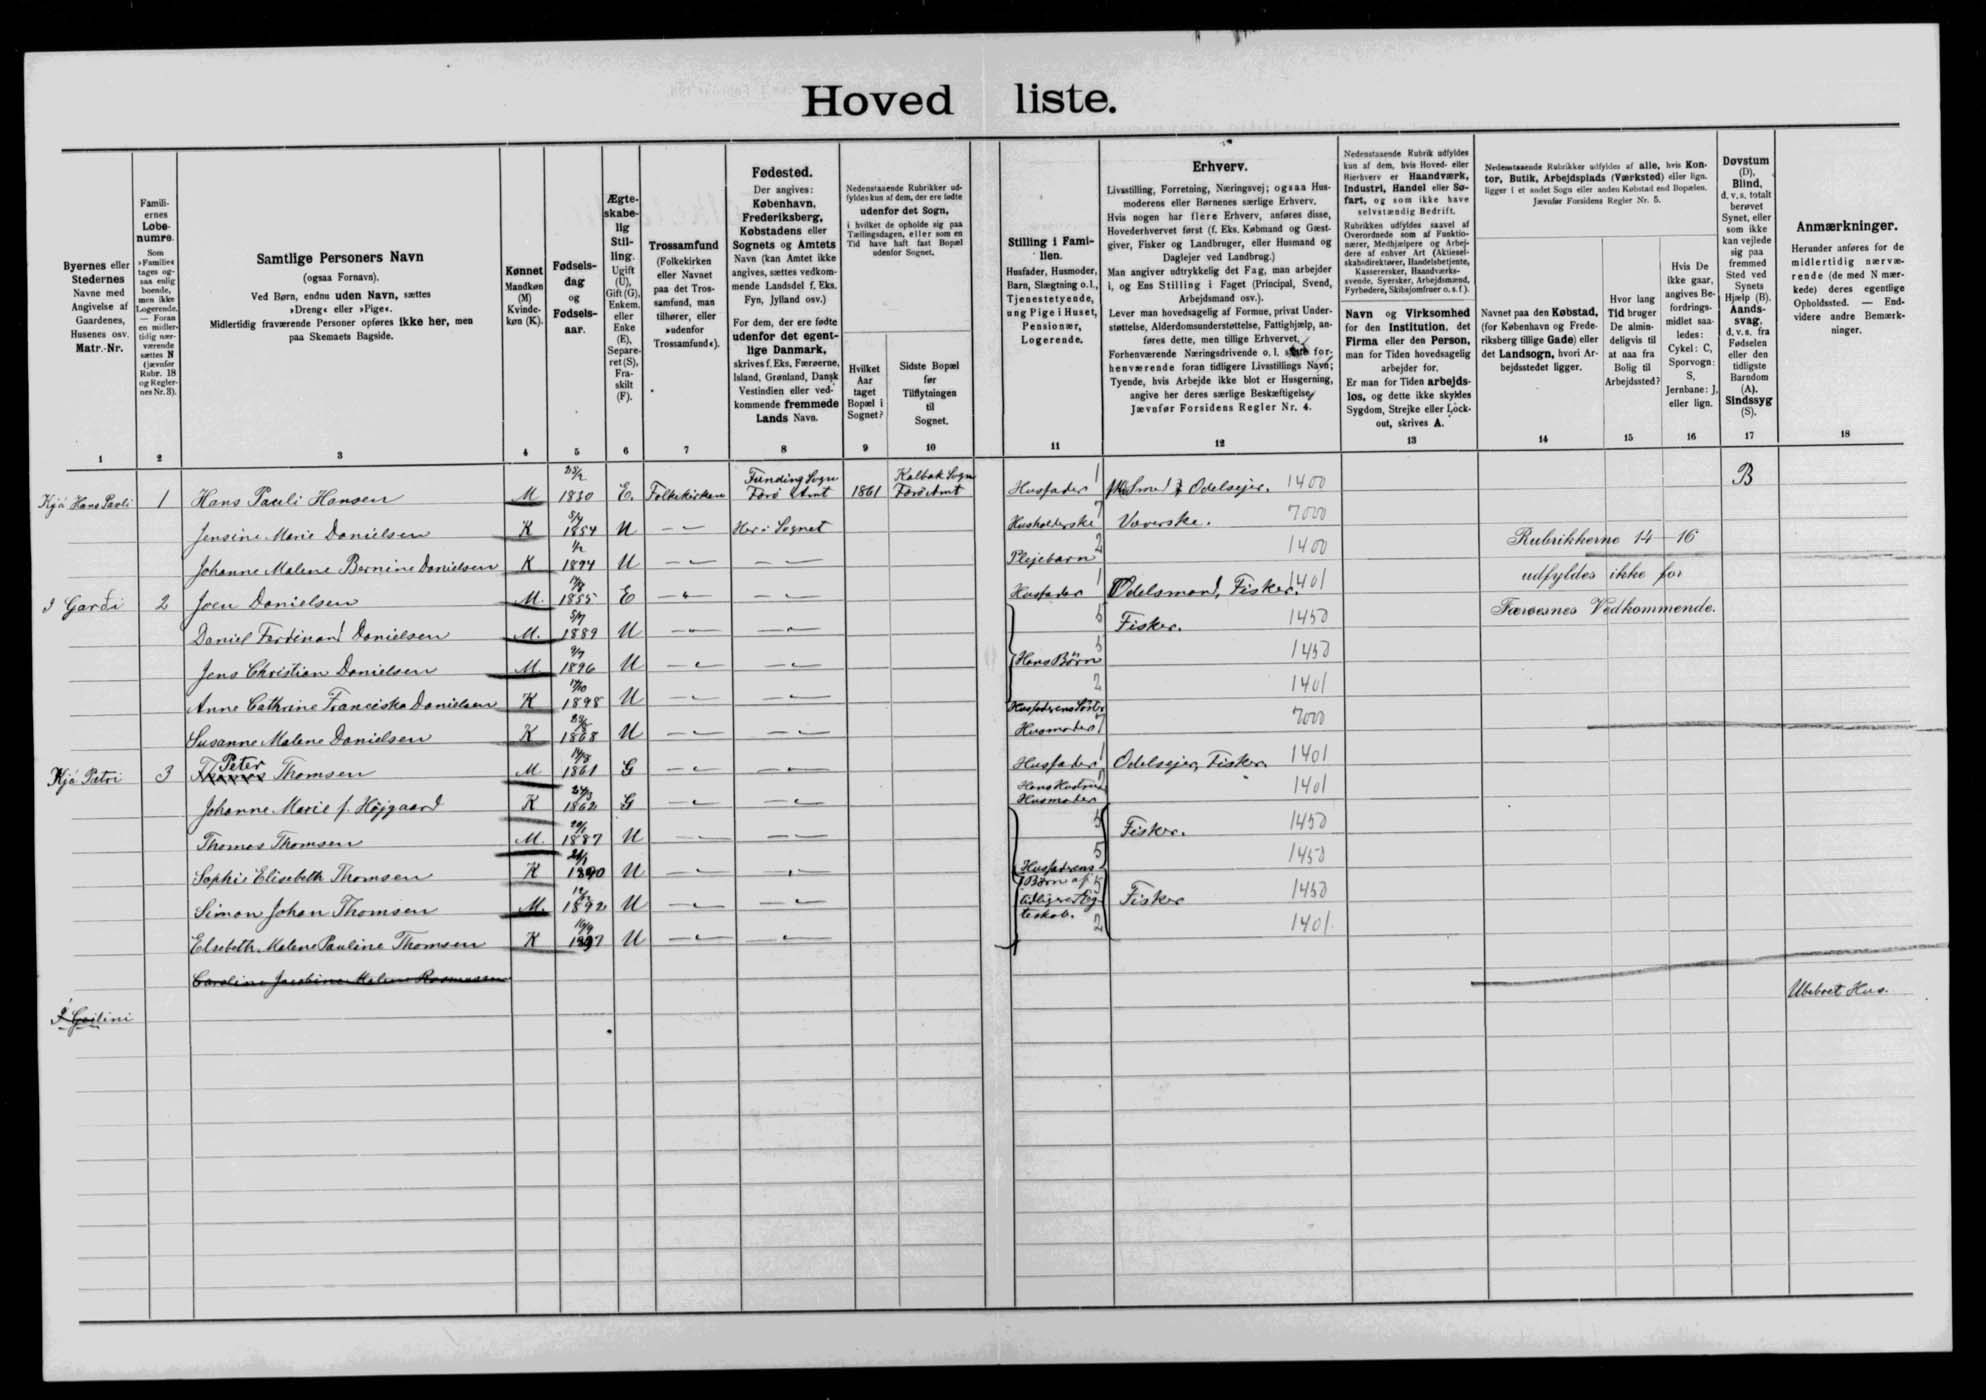 Hoved liste.
Byernes eller Stedernes Navne med Angivelse af Gaardenes, Husenes osv. Matr.-Nr.
Familiernes Løbenumre. Som »Familie« tages ogsaa enlig boende, men ikke Logerende. — Foran en midlertidig nærværende sættes N (jævnfør Rubr. 18 og Reglernes Nr. 3).
Samtlige Personers Navn (ogsaa Fornavn). Ved Børn, endnu uden Navn, sættes »Dreng« eller »Pige«. Midlertidig fraværende Personer opføres ikke her, men paa Skemaets Bagside.
Kønnet Mandkøn (M) Kvindekøn (K).
Fødselsdag og Fødselsaar.
Ægteskabelig Stilling. Ugift (U), Gift (G), Enkem. eller Enke (E), Separeret (S), Fraskilt (F).
Trossamfund (Folkekirken eller Navnet paa det Trossamfund, man tilhører, eller »udenfor Trossamfund«).
Fødested. Der angives: København, Frederiksberg, Købstadens eller Sognets og Amtets Navn (kan Amtet ikke angives, sættes vedkommende Landsdel f. Eks. Fyn, Jylland osv.) For dem, der ere fødte udenfor det egentlige Danmark, skrives f. Eks. Færøerne, Island, Grønland, Dansk Vestindien eller vedkommende fremmede Lands Navn.
Nedenstaaende Rubrikker udfyldes kun af dem, der ere fødte udenfor det Sogn, i hvilket de opholde sig paa Tællingsdagen, eller som en Tid have haft fast Bopæl udenfor Sognet.
Hvilket Aar taget Bopæl i Sognet?
Sidste Bopæl før Tilflytningen til Sognet.
Stilling i Familien. Husfader, Husmoder, Barn, Slægtning o.l., Tjenestetyende, ung Pige i Huset, Pensionær, Logerende.
Erhverv. Livsstilling, Forretning, Næringsvej; ogsaa Husmoderens eller Børnenes særlige Erhverv. Hvis nogen har flere Erhverv, anføres disse, Hovederhvervet først (f. Eks. Købmand og Gæstgiver, Fisker og Landbruger, eller Husmand og Daglejer ved Landbrug.) Man angiver udtrykkelig det Fag, man arbejder i, og Ens Stilling i Faget (Principal, Svend, Arbejdsmand osv.). Lever man hovedsagelig af Formue, privat Understøttelse, Alderdomsunderstøttelse, Fattighjælp, anføres dette, men tillige Erhvervet. Forhenværende Næringsdrivende o. l. forhenværende foran tidligere Livsstillings Navn; Tyende, hvis Arbejde ikke blot er Husgerning, angive her deres særlige Beskæftigelse. Jævnfør Forsidens Regler Nr. 4.
Nedenstaaende Rubrik udfyldes kun af dem, hvis Hoved- eller Bierhverv er Haandværk, Industri, Handel eller Søfart, og som ikke have selvstændig Bedrift. Rubrikken udfyldes saavel af Overordnede som af Funktionærer, Medhjælpere og Arbejdere af enhver Art (Aktieselskabsdirektører, Handelsbetjente, Kasserersker, Haandværkssvende, Syersker, Arbejdsmænd, Fyrbødere, Skibsjomfruer o. s. f.).
Navn og Virksomhed for den Institution, det Firma eller den Person, man for Tiden hovedsagelig arbejder for. Er man for Tiden arbejdsløs, og dette ikke skyldes Sygdom, Strejke eller Lockout, skrives A.
Nedenstaaende Rubrikker udfyldes af alle, hvis Kontor, Butik, Arbejdsplads (Værksted) eller lign. ligger i et andet Sogn eller anden Købstad end Bopælen. Jævnfør Forsidens Regler Nr. 5.
Navnet paa den Købstad, (for København og Frederiksberg tillige Gade) eller det Landsogn, hvori Arbejdsstedet ligger.
Hvor lang Tid bruger De almindeligvis til at naa fra Bolig til Arbejdssted?
Hvis De ikke gaar, angives Befordringsmidlet saaledes: Cykel: C, Sporvogn: S, Jernbane: J, eller lign.
Døvstum (D), Blind, d. v. s. totalt berøvet Synet, eller som ikke kan vejlede sig paa fremmed Sted ved Synets Hjælp (B). Aandssvag, d. v. s. fra Fødselen eller den tidligste Barndom (A). Sindssyg (S).
Anmærkninger. Herunder anføres for de midlertidig nærværende (de med N mærkede) deres egentlige Opholdssted. — Endvidere andre Bemærkninger.
1 2 3 4 5 6 7 8 9 10 11 12 13 14 15 16 17 18
Kjá Hans Pauli 1 Hans Pauli Hansen M 1830 E. Folkekirken Funding Sogn Færø Amt 1861 Kalbak Sogn Færø Amt Husfader 1 Odelsejer. 1400 B
Jensine Marie Danielsen K 5/4 1854 U — Her i Sognet Husholderske 7 Væverske. 7000
Johanne Malene Bernine Danielsen K 1894 U — — Plejebarn 2 1400
Rubrikkerne 14–16
udfyldes ikke for
Færøernes Vedkommende.
I Garði 2 Joen Danielsen M. 1855 E — — Husfader 1 Odelsmand, Fisker. 1401
Daniel Ferdinand Danielsen M. 1889 U — — 5 Fisker. 1450
Jens Christian Danielsen M. 1896 U — — Hans Børn 5 1450
Anne Cathrine Franciska Danielsen K 1898 U — — 2 1401
Susanne Malene Danielsen K 1868 U — — Husfaderens Søster Husmoder 7 7000
Kjá Petri 3 Peter Thomsen M 1861 G — — Husfader 1 Odelsejer, Fisker. 1401
Johanne Marie f. Højgaard K 1862 G — — Hans Hustru Husmoder 1401
Thomas Thomsen M. 1887 U — — 5 Fisker. 1450
Sophie Elisebeth Thomsen K 1890 U — — 5 1450
Simon Johan Thomsen M. 1892 U — — Husfaderens Børn af tidligere Ægteskab. 5 Fisker 1450
Elsebeth Malene Pauline Thomsen K 1897 U — — 2 1401.
Caroline Jacobine Malene Rasmussen
Í Geilini Ubeboet Hus.